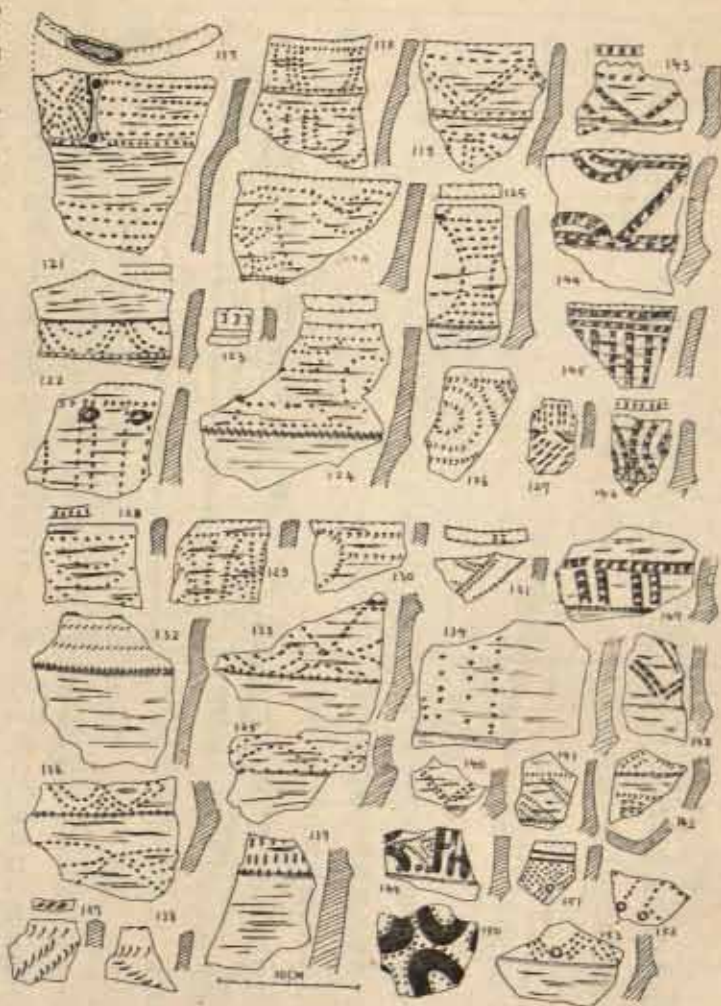 117
118
119
143
125
144
121
123
145
122
124
126
127
128
129
130
131
147
132
133
134
148
135
136
140
141
142
139
149
151
137
138
150
153
152
10CM